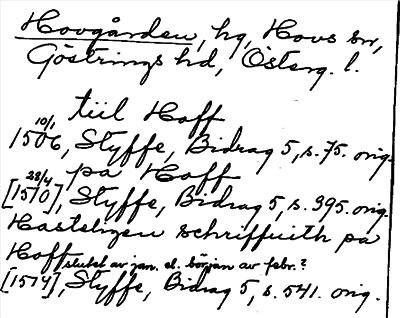 Hovgården, hg, Hovs sn,
Göstrings hd, Österg. l.
tiil Hoff
10/1
1506, Styffe, Bidrag 5, s. 75. orig.
pa Hoff
28/4
[1510], Styffe, Bidrag 5, s. 395. orig.
Hasteligen schriffuith pa
Hoff slutet av jan. el. början av febr.?
[1514], Styffe, Bidrag 5, s. 541. orig.